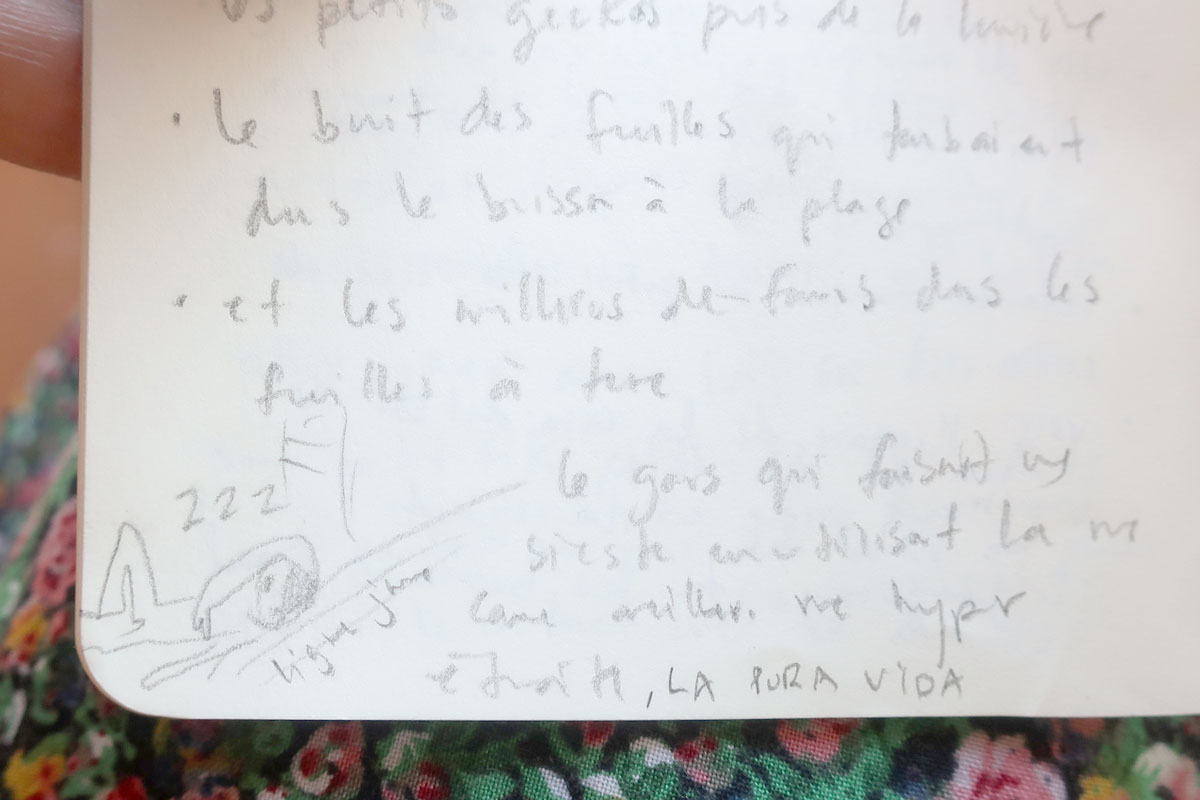 os petits geckos près de la lumière
• le bruit des feuilles qui tombaient
dans le buisson à la plage
• et les milliers de fourmis dans les
feuilles à terre
222
le gars qui faisait une
sieste en utilisant la rue
comme oreiller. rue hyper
étroite, LA PURA VIDA
ligne jaune